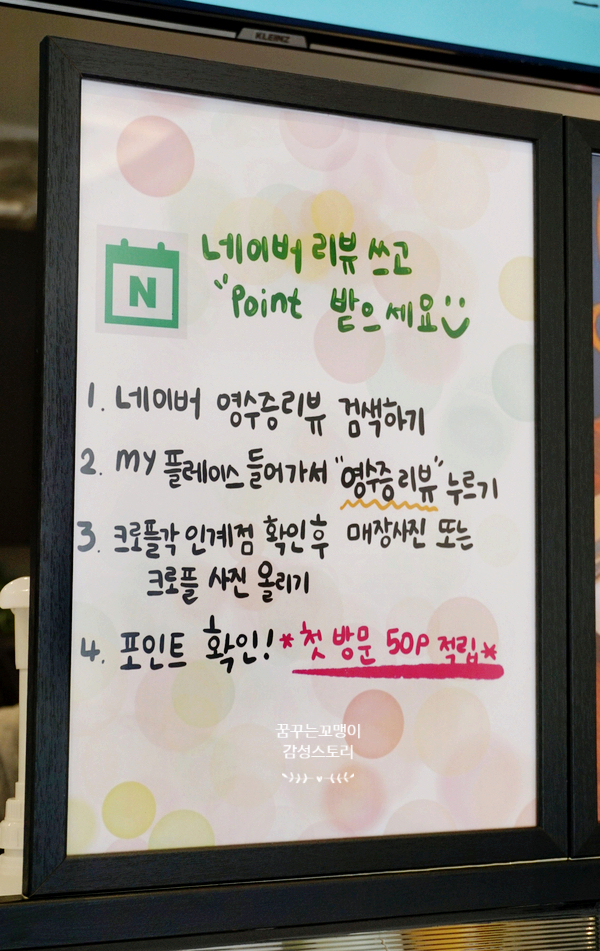 KLEINZ
N
네이버 리뷰 쓰고
"Point 받으세요
1. 네이버 영수증리뷰 검색하기
2. MY 플레이스 들어가서 "영수증리뷰" 누르기
3. 크로플각 인계점 확인후 매장사진 또는
크로플 사진 올리기
4. 포인트 확인! *첫 방문 50P 적립*
꿈꾸는꼬맹이
감성스토리